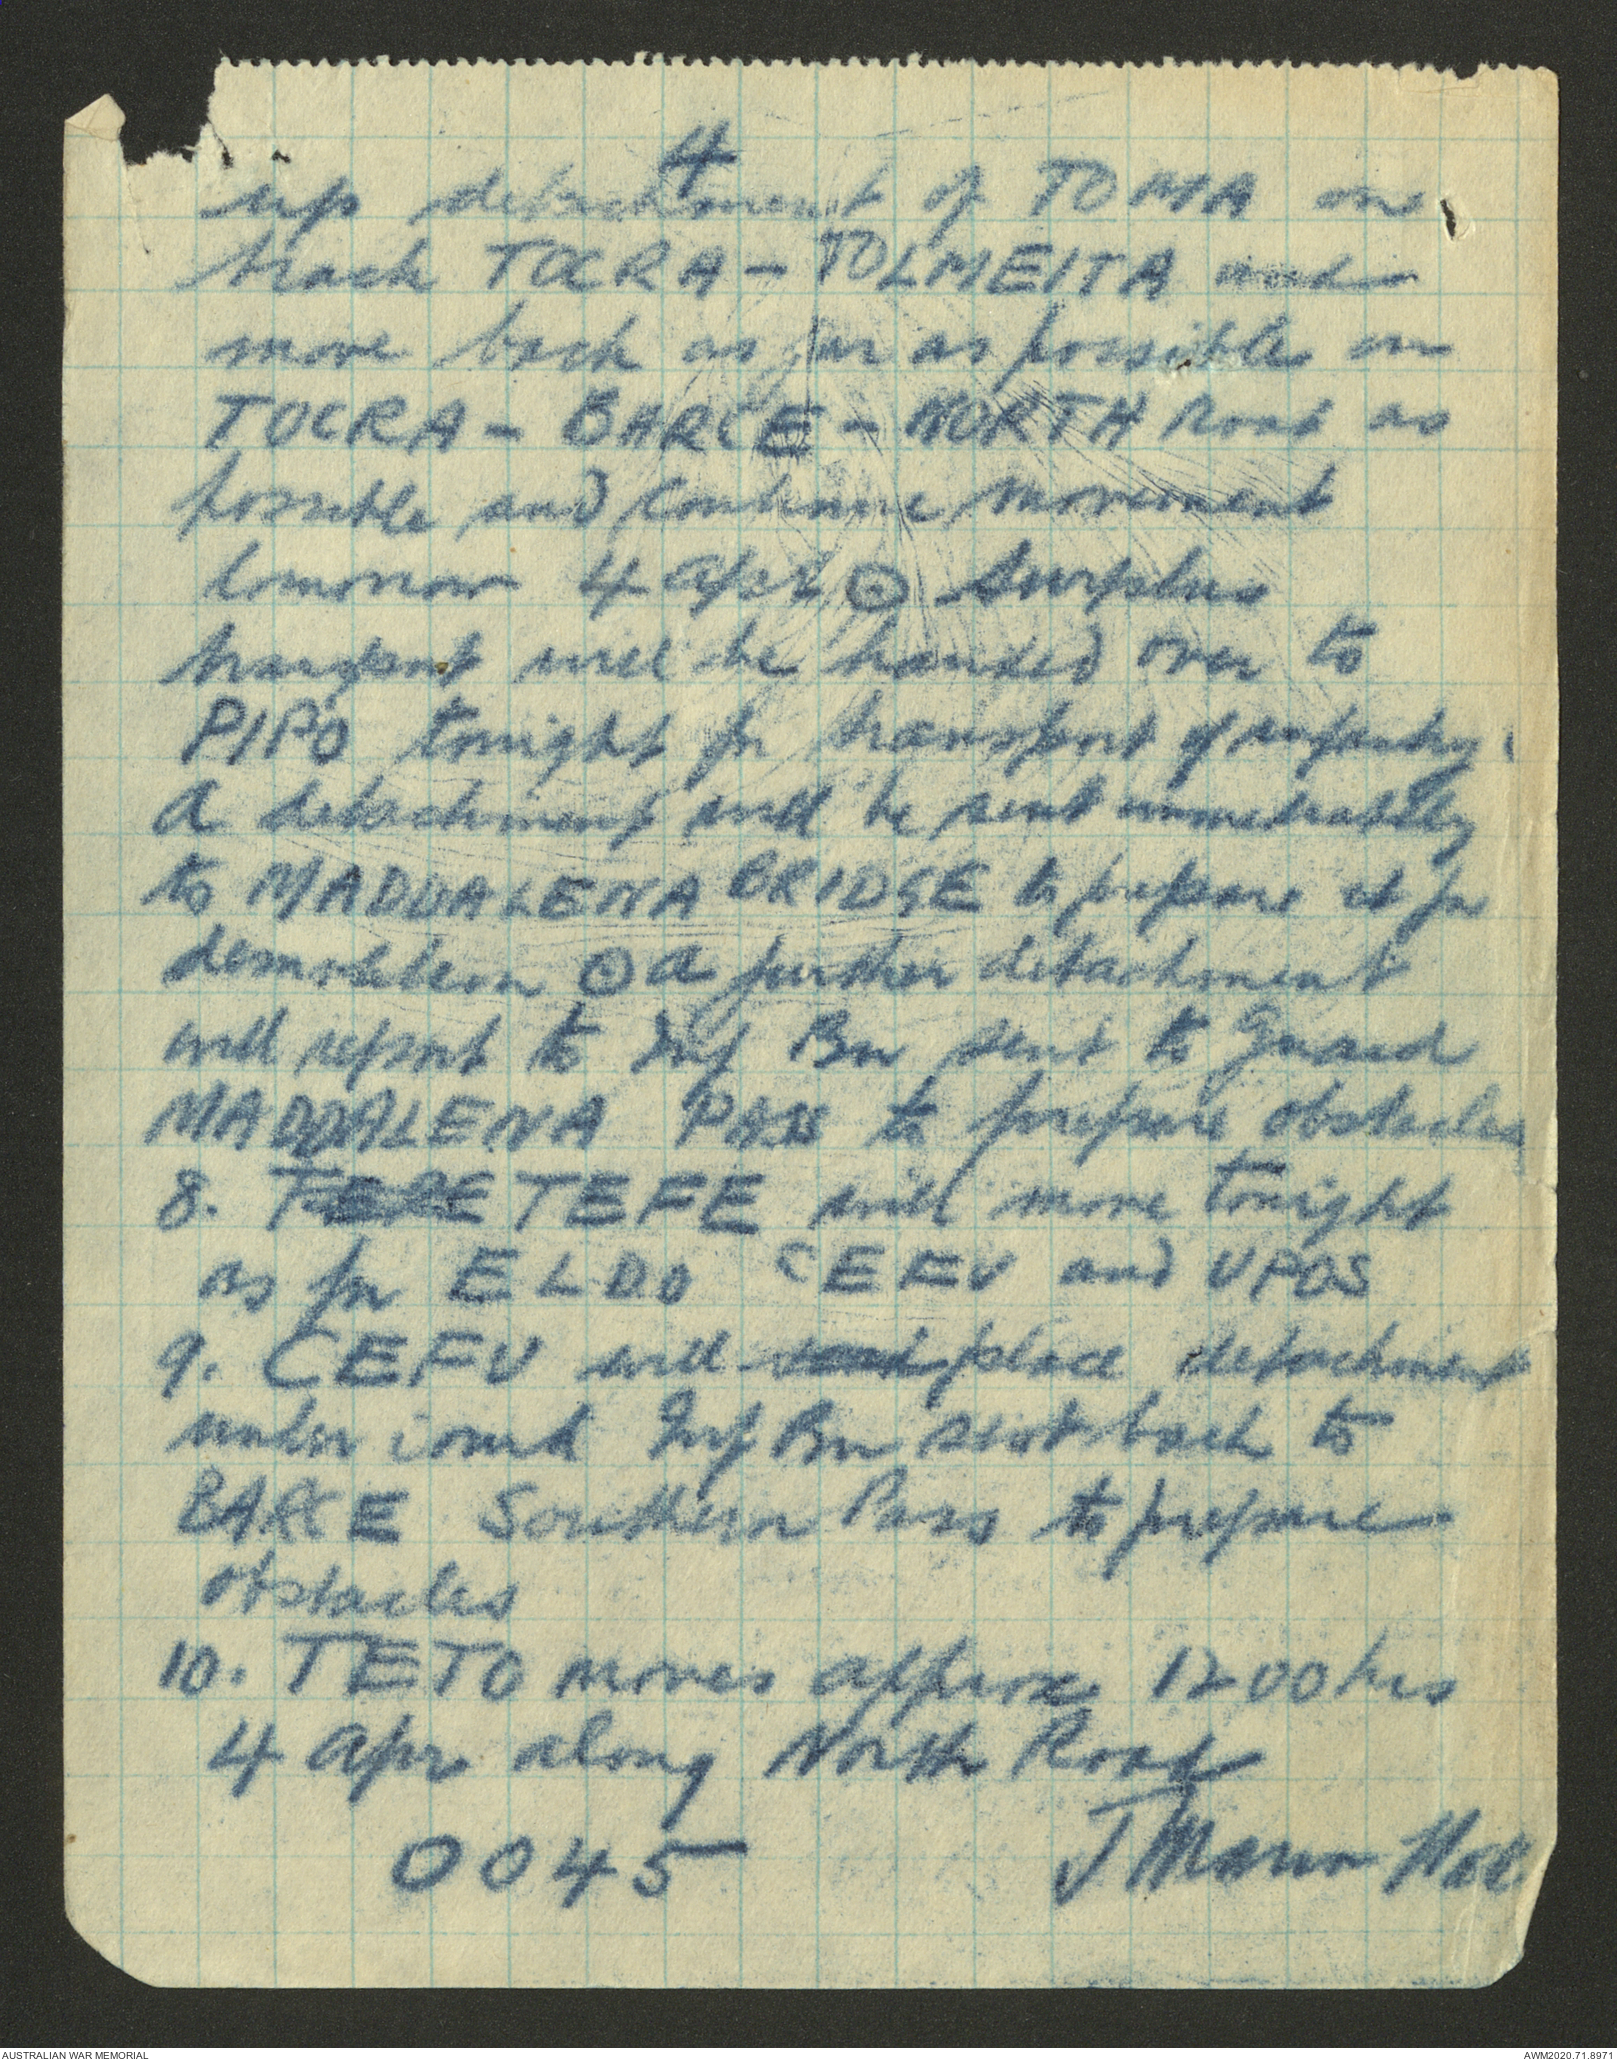 4
up detachment of TOMA on
track TOCRA - TOLMEITA and
move back as far as possible on
TOCRA - BARCE - NORTH Road as
possible and continue movement
tomorrow 4 Apr ⊙ Surplus
transport will be handed over to
PIPO tonight for transport of infantry.
A detachment will be sent immediately
to MADDALENA BRIDGE to prepare it for
demolition ⊙ A further detachment
will report to Inf Bn sent to Guard
MADDALENA PASS to prepare obstacles
8. TEFE will move tonight
as for ELDO CEFU and UPOS
9. CEFU will send place detachment
under comd Inf Bn sent back to
BARCE Southern Pass to prepare
obstacles
10. TETO moves approx 1200 hrs
4 Apr along North Road
0045 J Mann
AUSTRALIAN WAR MEMORIAL AWM2020.71.8971